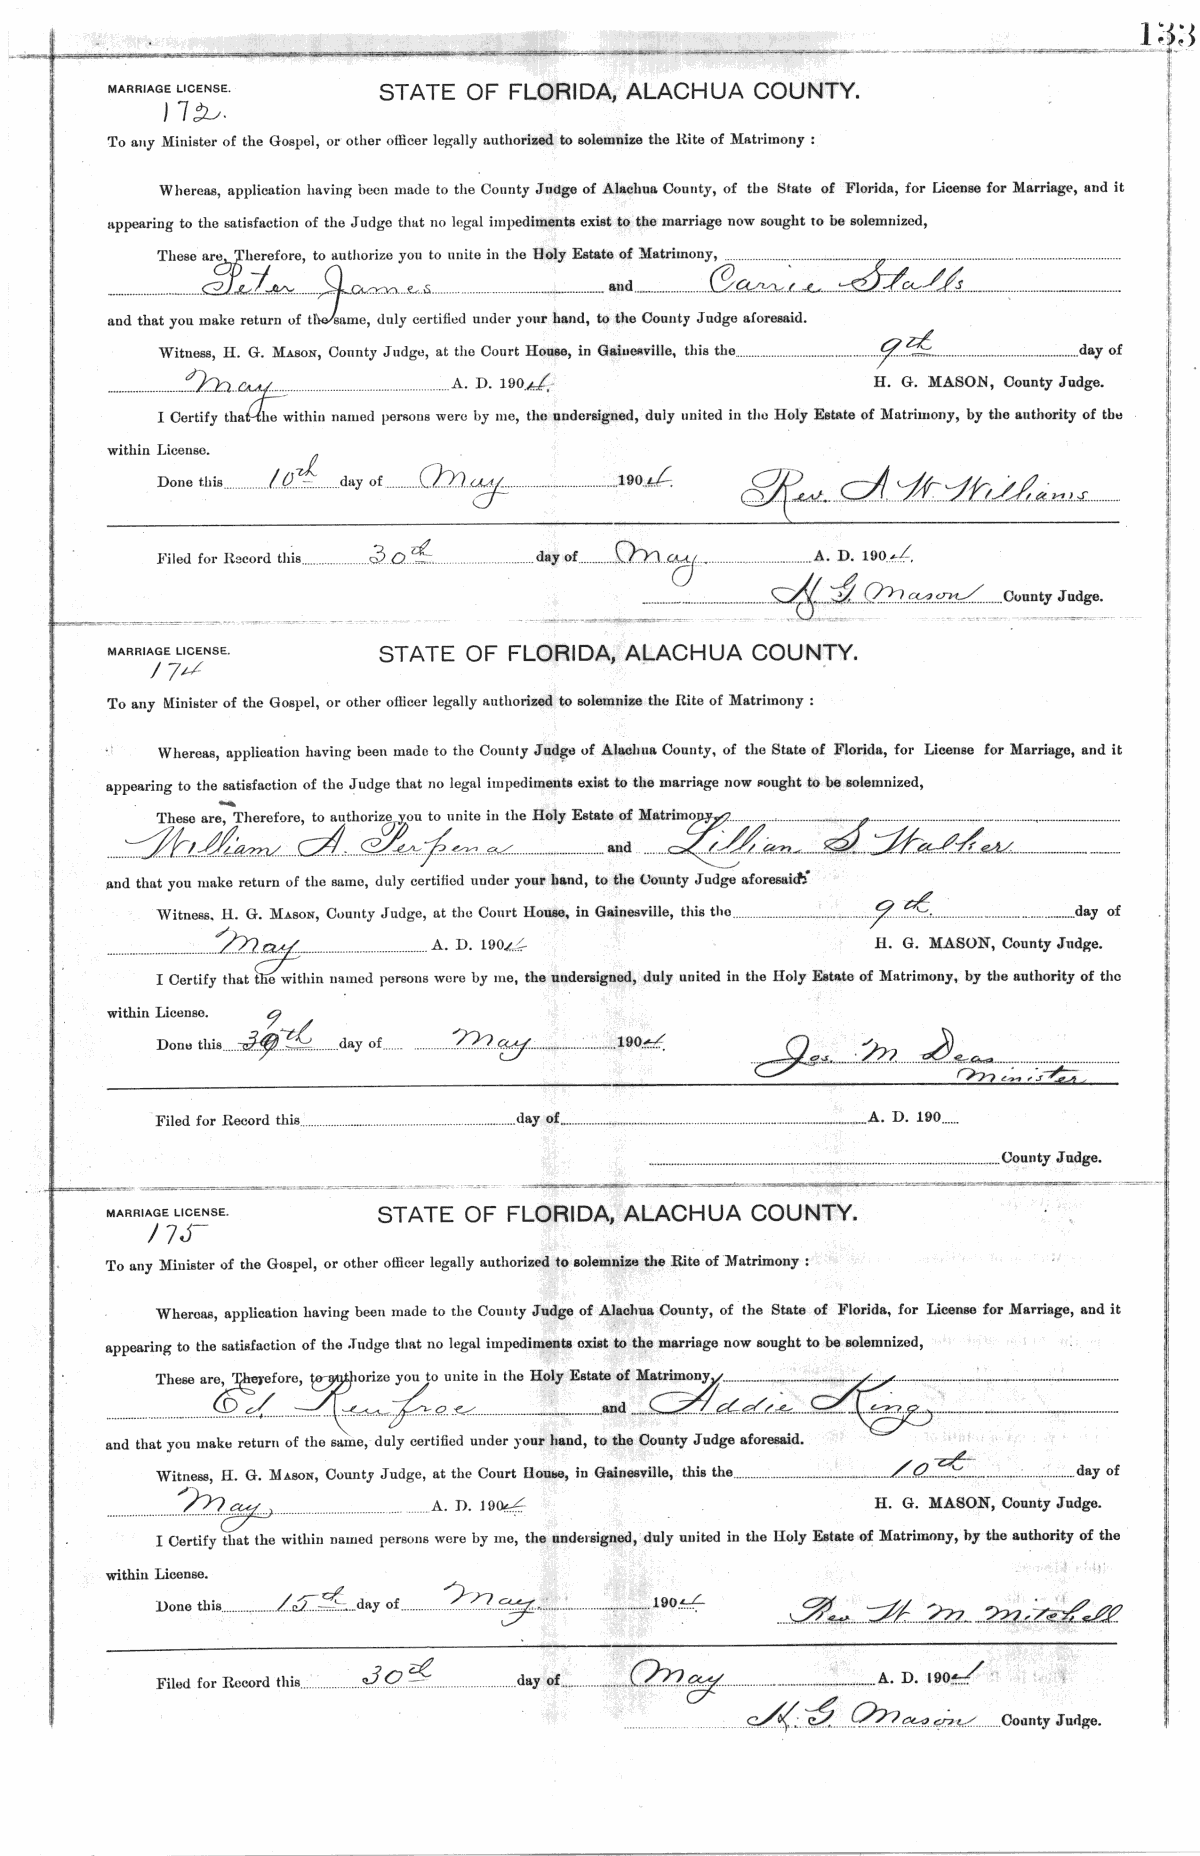 133
MARRIAGE LICENSE. STATE OF FLORIDA, ALACHUA COUNTY.
172.
To any Minister of the Gospel, or other officer legally authorized to solemnize the Rite of Matrimony :
Whereas, application having been made to the County Judge of Alachua County, of the State of Florida, for License for Marriage, and it
appearing to the satisfaction of the Judge that no legal impediments exist to the marriage now sought to be solemnized,
These are, Therefore, to authorize you to unite in the Holy Estate of Matrimony,
Peter James and Carrie Stalls
and that you make return of the same, duly certified under your hand, to the County Judge aforesaid.
Witness, H. G. MASON, County Judge, at the Court House, in Gainesville, this the 9th day of
May A. D. 1904. H. G. MASON, County Judge.
I Certify that the within named persons were by me, the undersigned, duly united in the Holy Estate of Matrimony, by the authority of the
within License.
Done this 10th day of May 1904. Rev. A W Williams
Filed for Record this 30th day of May. A. D. 1904.
H. G. Mason County Judge.
MARRIAGE LICENSE. STATE OF FLORIDA, ALACHUA COUNTY.
174
To any Minister of the Gospel, or other officer legally authorized to solemnize the Rite of Matrimony :
Whereas, application having been made to the County Judge of Alachua County, of the State of Florida, for License for Marriage, and it
appearing to the satisfaction of the Judge that no legal impediments exist to the marriage now sought to be solemnized,
These are, Therefore, to authorize you to unite in the Holy Estate of Matrimony,
William A. Perpena and Lillian S Walker
and that you make return of the same, duly certified under your hand, to the County Judge aforesaid.
Witness, H. G. MASON, County Judge, at the Court House, in Gainesville, this the 9th. day of
May A. D. 1904 H. G. MASON, County Judge.
I Certify that the within named persons were by me, the undersigned, duly united in the Holy Estate of Matrimony, by the authority of the
within License. 9
Done this 30th day of May 1904. Jos. M. Deas
Minister
Filed for Record this day of A. D. 190
County Judge.
MARRIAGE LICENSE. STATE OF FLORIDA, ALACHUA COUNTY.
175
To any Minister of the Gospel, or other officer legally authorized to solemnize the Rite of Matrimony :
Whereas, application having been made to the County Judge of Alachua County, of the State of Florida, for License for Marriage, and it
appearing to the satisfaction of the Judge that no legal impediments exist to the marriage now sought to be solemnized,
These are, Therefore, to authorize you to unite in the Holy Estate of Matrimony,
Ed, Renfroe and Addie King
and that you make return of the same, duly certified under your hand, to the County Judge aforesaid.
Witness, H. G. MASON, County Judge, at the Court House, in Gainesville, this the 10th day of
May, A. D. 1904 H. G. MASON, County Judge.
I Certify that the within named persons were by me, the undersigned, duly united in the Holy Estate of Matrimony, by the authority of the
within License.
Done this 15th day of May 1904 Rev W. M. Mitchell
Filed for Record this 30th day of May A. D. 1904
H. G. Mason County Judge.